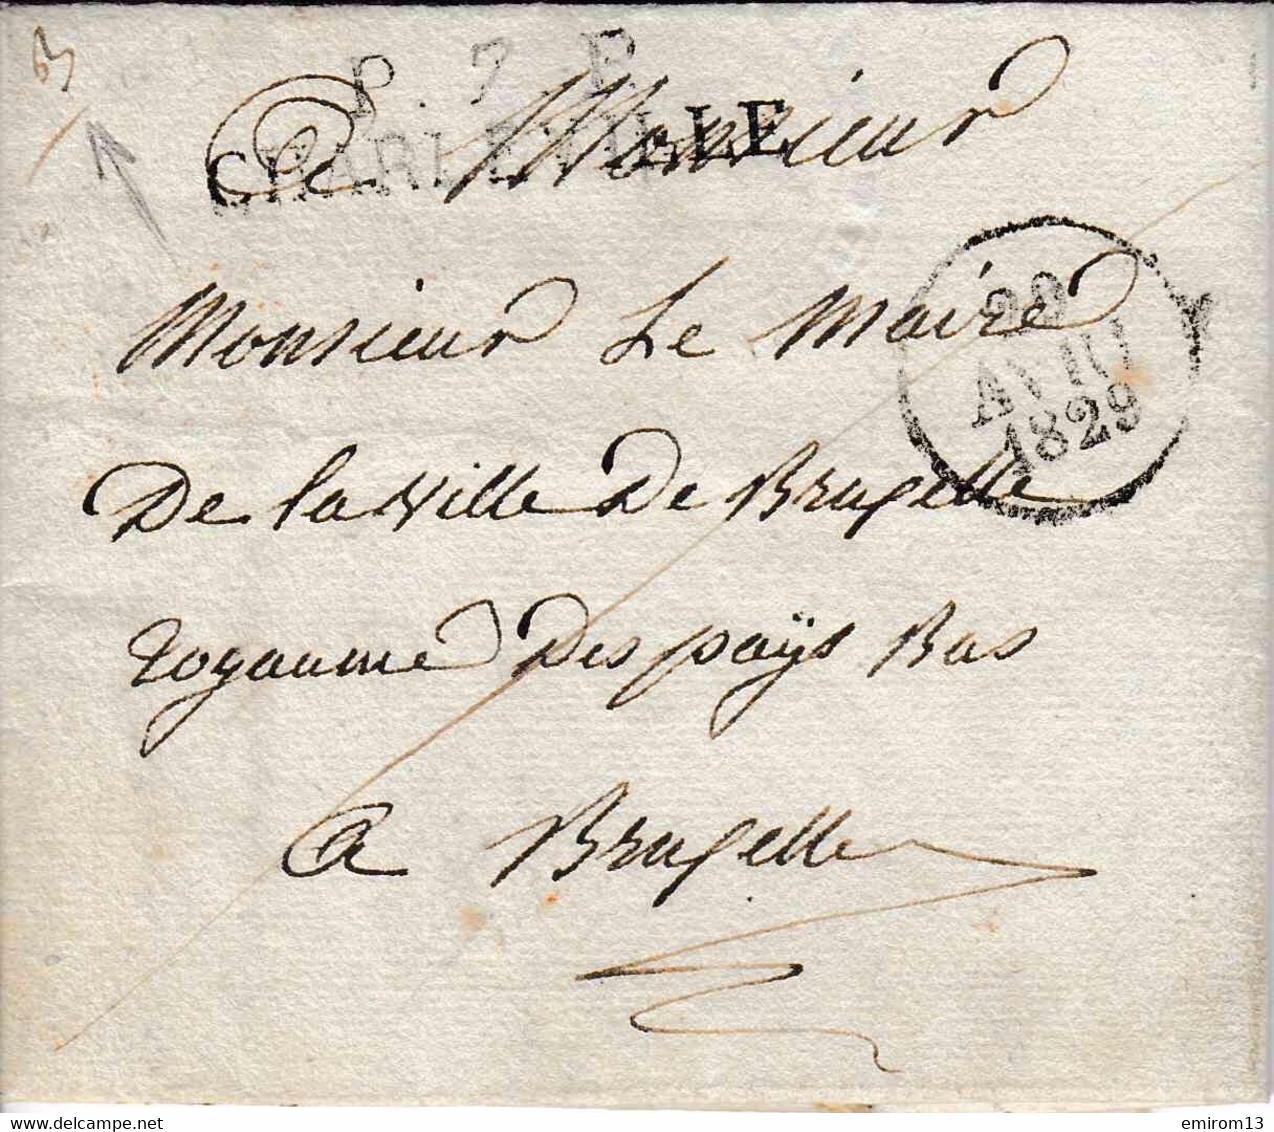 P. 7. P.
CHARLEVILLE
A Monsieur
Monsieur Le Maire
20
1829
De la Ville De Bruxelle
royaume Des pays Bas
a Bruxelle
delcampe.net
emirom13